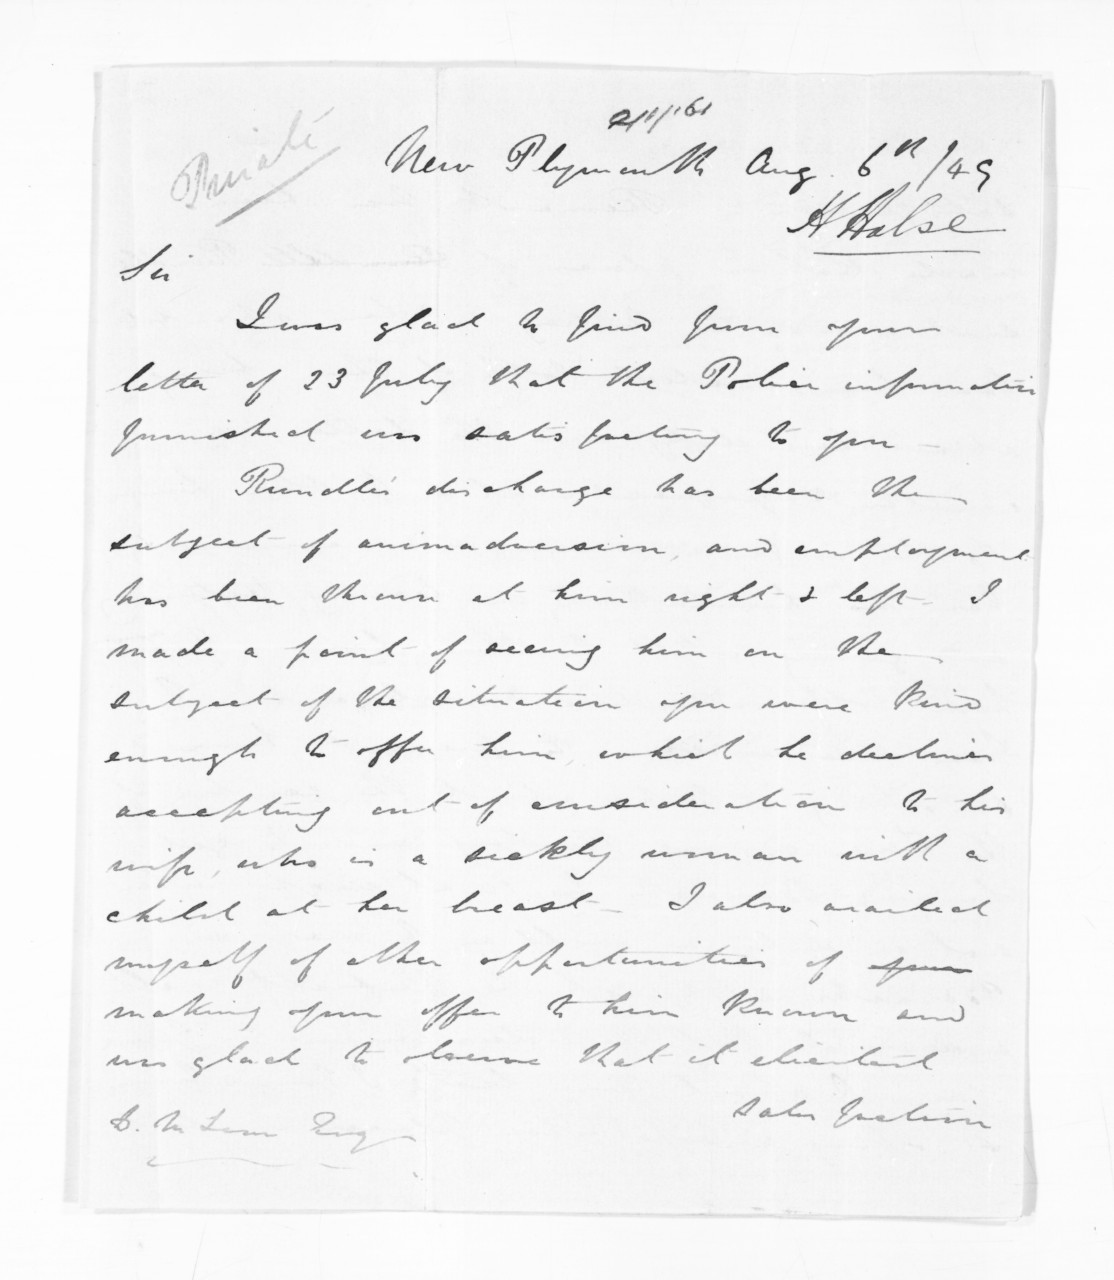 Private
New Plymouth Aug. 6th /49
H Halse
Sir
I was glad to find from your
letter of 23 July that the Police information
furnished was satisfactory to you —
Rundle's discharge has been the
subject of animadversion, and employment
has been thrown at him right & left — I
made a point of seeing him on the
subject of the situation you were kind
enough to offer him, which he declines
accepting out of consideration to his
wife, who is a sickly woman with a
child at her breast — I also availed
myself of other opportunities of your
making your offer to him known and
was glad to observe that it elicited
satisfaction
D. McLean Esq